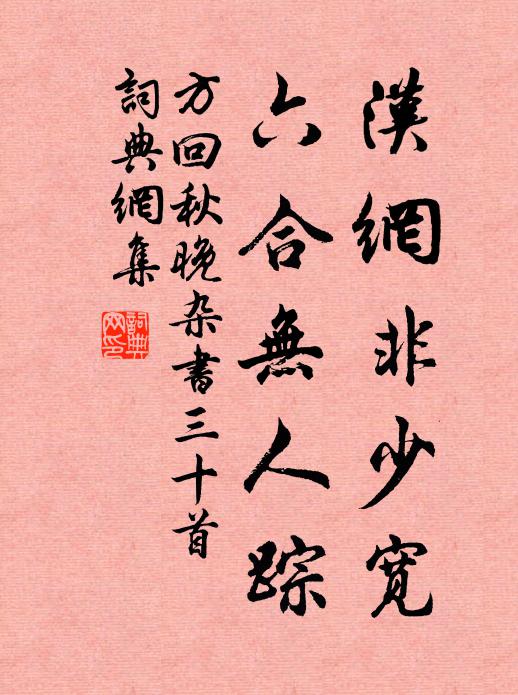 漢網非少寬
六合無人踪
方回秋晚杂書三十首
詞典網集
詞典網印